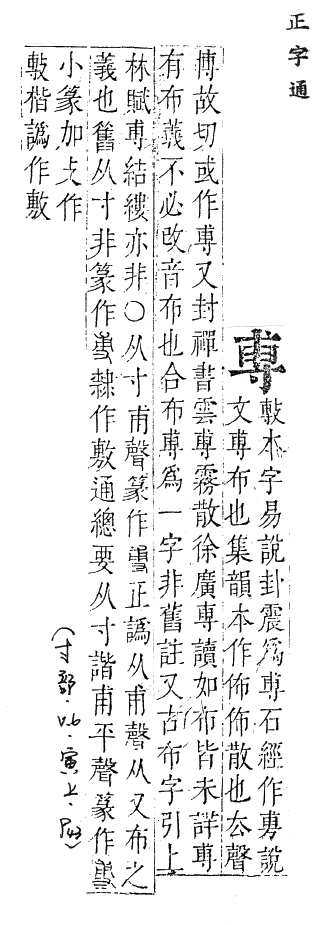 正字通
尃
敷本字易說卦震爲尃石經作旉說
文尃布也集韻本作佈佈散也去聲
博故切或作尃又封禪書雲尃霧散徐廣尃讀如布皆未詳尃
有布義不必改音布也合布尃爲一字非舊註又古布字引上
林賦尃結縷亦非〇从寸甫聲篆作正譌从甫聲从又布之
義也舊从寸非篆作隸作敷通總要从寸諧甫平聲篆作
小篆加攴作
敷楷譌作敷
(寸部·06·寅上·